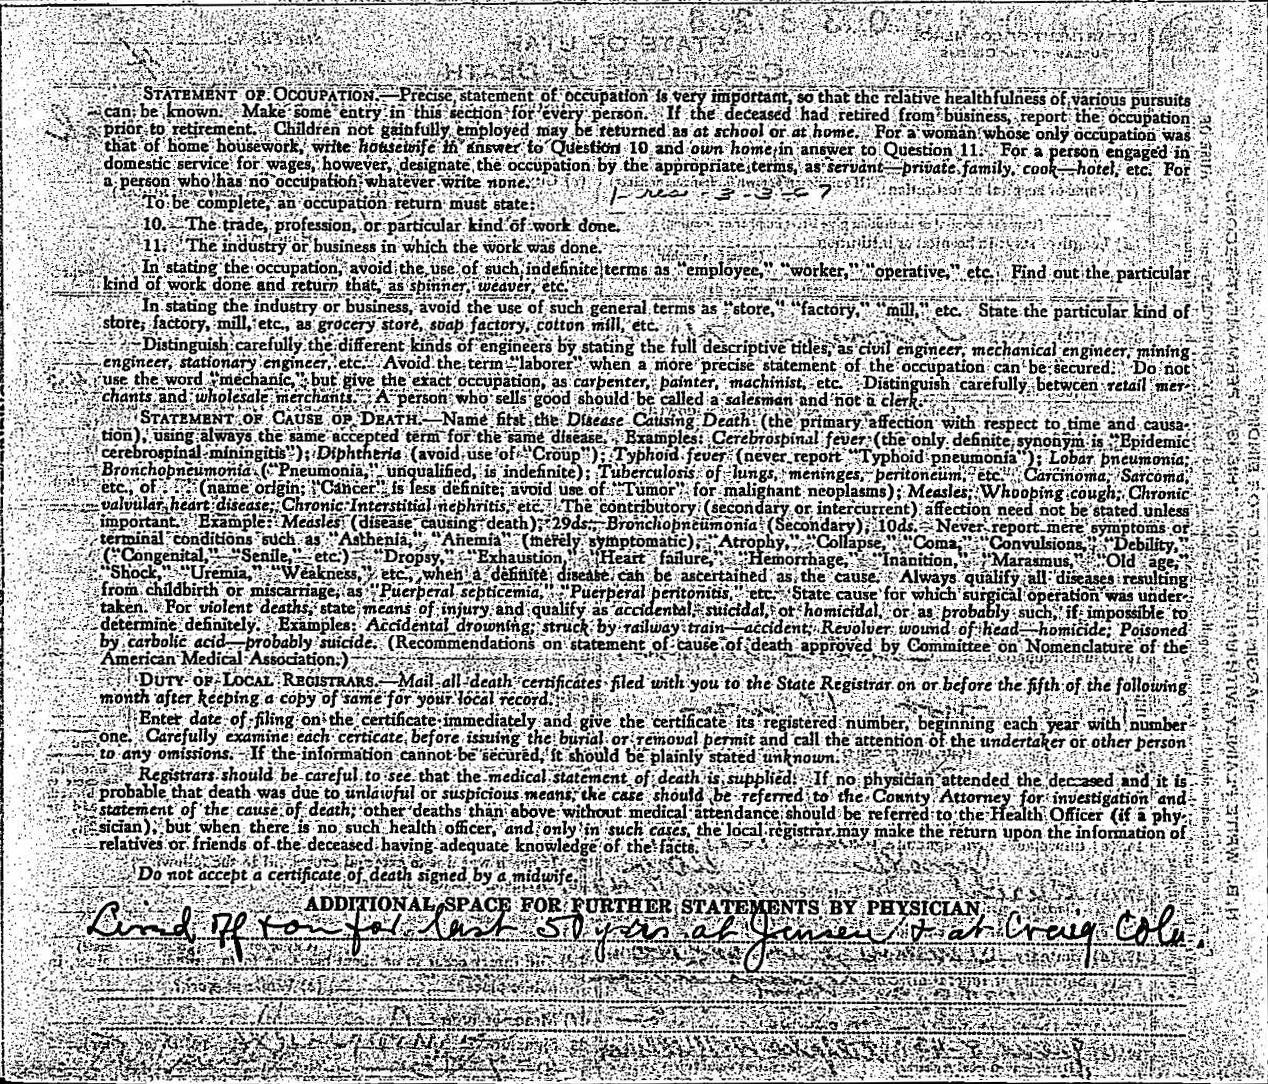 STATEMENT OF OCCUPATION.—Precise statement of occupation is very important, so that the relative healthfulness of various pursuits
can be known. Make some entry in this section for every person. If the deceased had retired from business, report the occupation
prior to retirement. Children not gainfully employed may be returned as at school or at home. For a woman whose only occupation was
that of home housework, write housewife in answer to Question 10 and own home in answer to Question 11. For a person engaged in
domestic service for wages, however, designate the occupation by the appropriate terms, as servant—private family, cook—hotel, etc. For
a person who has no occupation whatever write none.
3-3-67
To be complete, an occupation return must state:
10. The trade, profession, or particular kind of work done.
11. The industry or business in which the work was done.
In stating the occupation, avoid the use of such indefinite terms as "employee," "worker," "operative," etc. Find out the particular
kind of work done and return that, as spinner, weaver, etc.
In stating the industry or business, avoid the use of such general terms as "store," "factory," "mill," etc. State the particular kind of
store, factory, mill, etc., as grocery store, soap factory, cotton mill, etc.
Distinguish carefully the different kinds of engineers by stating the full descriptive titles, as civil engineer, mechanical engineer, mining
engineer, stationary engineer, etc. Avoid the term "laborer" when a more precise statement of the occupation can be secured. Do not
use the word "mechanic," but give the exact occupation, as carpenter, painter, machinist, etc. Distinguish carefully between retail mer-
chants and wholesale merchants. A person who sells good should be called a salesman and not a clerk.
STATEMENT OF CAUSE OF DEATH.—Name first the Disease Causing Death (the primary affection with respect to time and causa-
tion), using always the same accepted term for the same disease. Examples: Cerebrospinal fever (the only definite synonym is "Epidemic
cerebrospinal miningitis"); Diphtheria (avoid use of "Croup"); Typhoid fever (never report "Typhoid pneumonia"); Lobar pneumonia;
Bronchopneumonia ("Pneumonia," unqualified, is indefinite); Tuberculosis of lungs, meninges, peritoneum, etc. Carcinoma, Sarcoma,
etc., of (name origin; "Cancer" is less definite; avoid use of "Tumor" for malignant neoplasms); Measles; Whooping cough; Chronic
valvular heart disease; Chronic Interstitial nephritis, etc. The contributory (secondary or intercurrent) affection need not be stated unless
important. Example: Measles (disease causing death); 29ds. Bronchopneumonia (Secondary), 10ds. Never report mere symptoms or
terminal conditions such as "Asthenia," "Anemia" (merely symptomatic), "Atrophy," "Collapse," "Coma," "Convulsions, "Debility,"
("Congenital," "Senile," etc.) "Dropsy," "Exhaustion," "Heart failure," "Hemorrhage, "Inanition," "Marasmus," "Old age,"
"Shock," "Uremia," "Weakness," etc., when a definite disease can be ascertained as the cause. Always qualify all diseases resulting
from childbirth or miscarriage, as "Puerperal septicemia," "Puerperal peritonitis," etc. State cause for which surgical operation was under-
taken. For violent deaths, state means of injury and qualify as accidental, suicidal, or homicidal, or as probably such, if impossible to
determine definitely. Examples: Accidental drowning; struck by railway train—accident; Revolver wound of head—homicide; Poisoned
by carbolic acid—probably suicide. (Recommendations on statement of cause of death approved by Committee on Nomenclature of the
American Medical Association.)
DUTY OF LOCAL REGISTRARS.—Mail all death certificates filed with you to the State Registrar on or before the fifth of the following
month after keeping a copy of same for your local record.
Enter date of filing on the certificate immediately and give the certificate its registered number, beginning each year with number
one. Carefully examine each certicate before issuing the burial or removal permit and call the attention of the undertaker or other person
to any omissions. If the information cannot be secured, it should be plainly stated unknown.
Registrars should be careful to see that the medical statement of death is supplied. If no physician attended the deceased and it is
probable that death was due to unlawful or suspicious means, the case should be referred to the County Attorney for investigation and
statement of the cause of death; other deaths than above without medical attendance should be referred to the Health Officer (if a phy-
sician), but when there is no such health officer, and only in such cases, the local registrar may make the return upon the information of
relatives or friends of the deceased having adequate knowledge of the facts.
Do not accept a certificate of death signed by a midwife.
ADDITIONAL SPACE FOR FURTHER STATEMENTS BY PHYSICIAN
Lived off & on for last 50 yrs at Jensen & at Craig Colo.